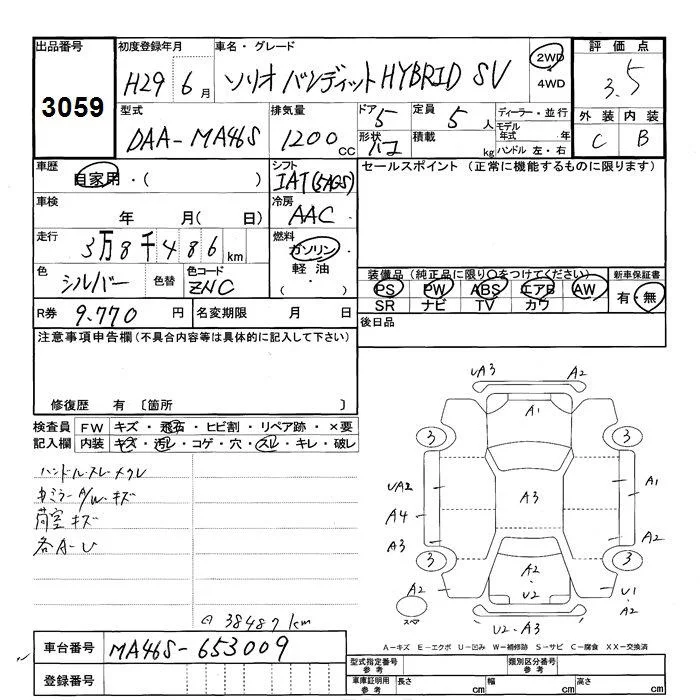 出品番号 初度登録年月 車名・グレード 評価点
3059 H29 6月 ソリオ バンディット HYBRID SV 2WD・4WD 3.5
型式 排気量 ドア 定員 ディーラー・並行 外装 内装
DAA-MA46S 1200cc 5 5人 モデル年式 年 C B
形状 ハコ 積載 kg ハンドル 左・右
車歴 シフト セールスポイント (正常に機能するものに限ります)
自家用・( ) IAT(5AGS)
車検 冷房
年 月( 日) AAC
走行 燃料
3万8千486km ガソリン・
色 色替 色コード 軽油・
シルバー ZNC ( )
装備品(純正品に限り○をつけてください) 新車保証書
PS PW ABS エアB AW 有・無
SR ナビ TV カワ
R券 9.770円 名変期限 月 日 後日品
注意事項申告欄(不具合内容等は具体的に記入して下さい)
修復歴 有 〔箇所 〕
検査員 FW キズ・飛石・ヒビ割・リペア跡・×要
記入欄 内装 キズ・汚レ・コゲ・穴・スレ・キレ・破レ
ハンドル.スレ.メクレ
ミラー A/W.キズ
荷室 キズ
各A-U
38487km
UA3 A2
A1
3 3
UA2 A3 A1
A4
A3
3 3
A2 A2 U1
U2 A2
スペア
U2-A3
A-キズ E-エクボ U-凹み W-補修跡 S-サビ C-腐食 XX-交換済
車台番号 MA46S-653009
登録番号
型式指定番号 参考 類別区分番号 参考
車庫証明用 参考 長さ cm 幅 cm 高さ cm